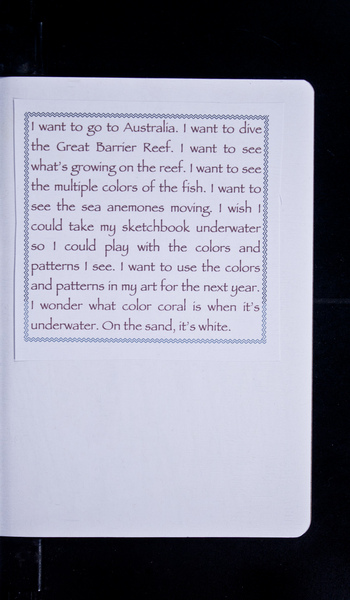 I want to go to Australia. I want to dive
the Great Barrier Reef. I want to see
what's growing on the reef. I want to see
the multiple colors of the fish. I want to
see the sea anemones moving. I wish I
could take my sketchbook underwater
so I could play with the colors and
patterns I see. I want to use the colors
and patterns in my art for the next year.
I wonder what color coral is when it's
underwater. On the sand, it's white.